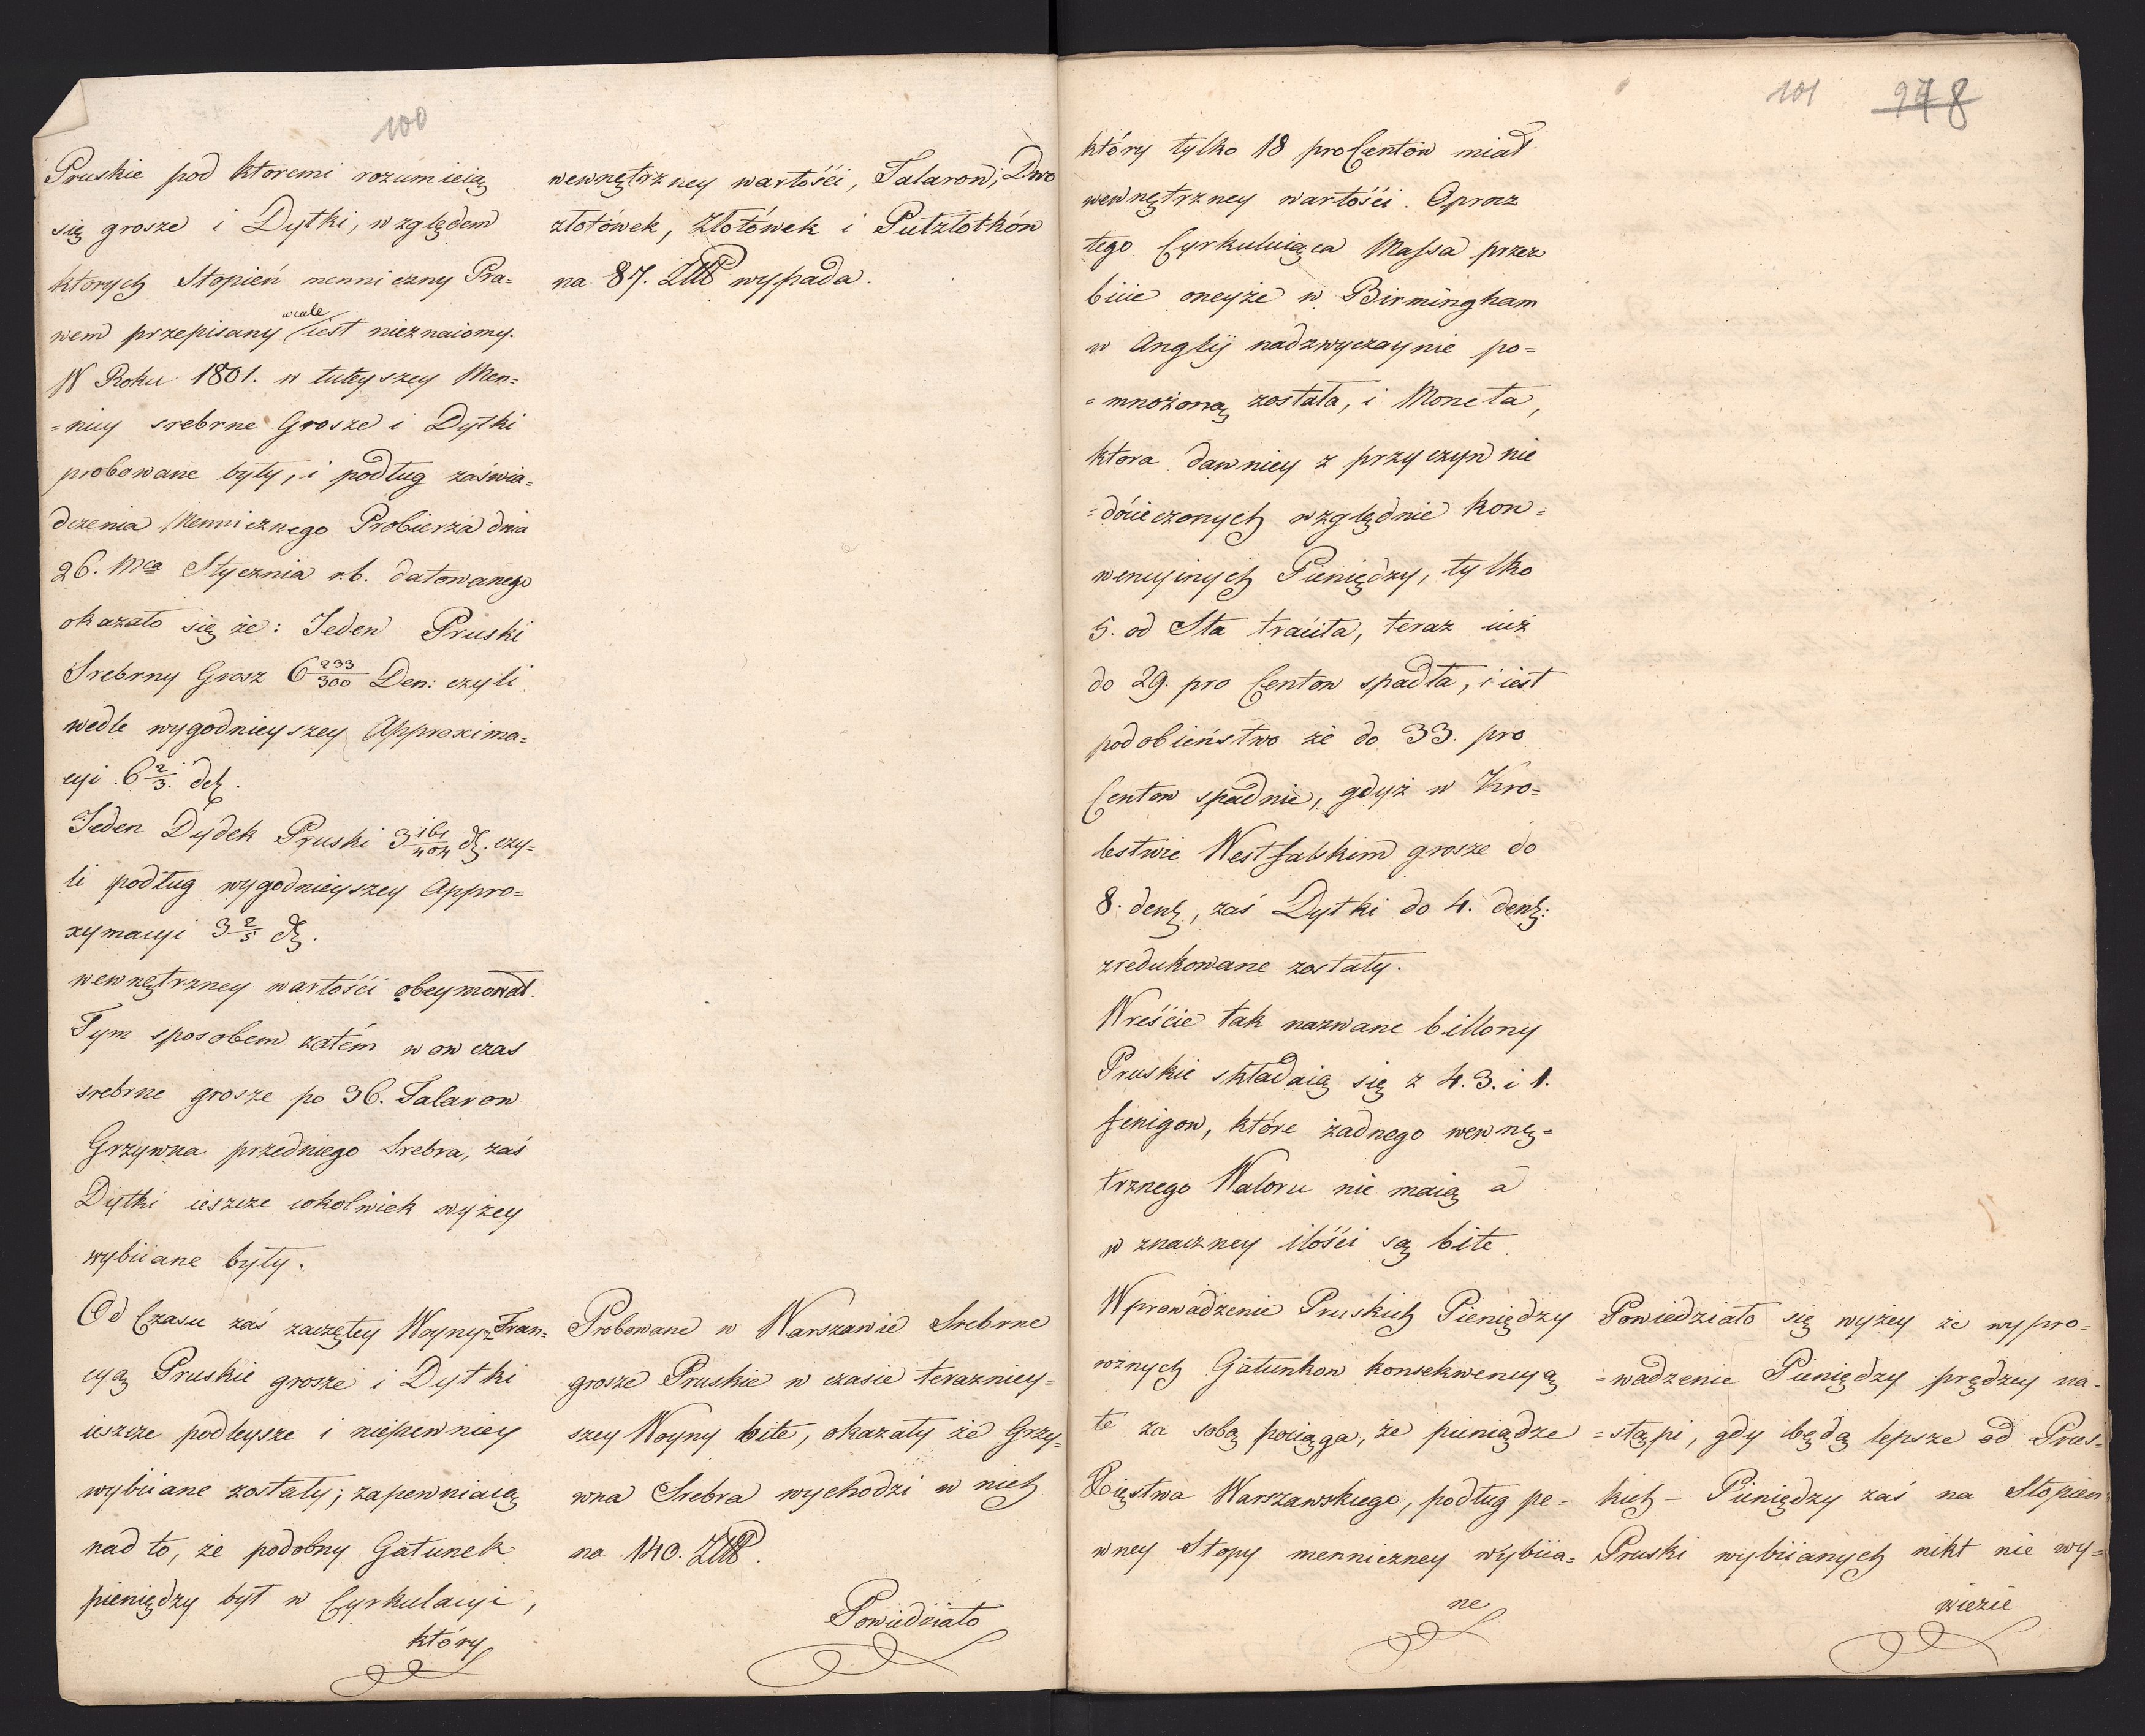 100
Pruskie pod ktoremi rozumieią
się grosze i Dytki, względem
ktorych Stopień menniczny Pra=
wem przepisany wcale iest nieznaiomy.
W Roku 1801. w tuteyszey Men=
=nicy srebrne Grosze i Dytki
probowane były, i podług zaświa=
dczenia Mennicznego Probierza dnia
26. Mca Stycznia r.b. datowanego
okazało się że: Jeden Pruski
Srebrny Grosz 6 233/300 Den: czyli
wedle wygodnieyszey Approxima=
cyi 6 2/3. d.
Jeden Dydek Pruski 3 161/404 d. czy=
li podług wygodnieyszey Appro=
xymacyi 3 2/5 d.
wewnętrzney wartośći obeymował.
Tym sposobem zatém wowczas
srebrne grosze po 36. Talarow
Grzywna przedniego Srebra, zaś
Dytki ieszcze cokolwiek wyżey
wybiiane były.
Od Czasu zaś zaczętey Woyny z Fran=
cyą Pruskie grosze i Dytki
ieszcze podleysze i niepewniey
wybiiane zostały; zapewniaią
nad to, że podobny Gatunek
pieniędzy był w Cyrkulacyi,
który
wewnętrzney wartośći, Talarow, Dwo
złotówek, Złotówek i Pułzłotków
na 87. Złłp wypada.
Probowane w Warszawie Srebrne
grosze Pruskie w czasie terazniey=
szey Woyny bite, okazały że Grzy=
wna Srebra wychodzi w nich
na 140. Złłp.
Powiedziało
101 978
który tylko 18 pro Centow miał
wewnętrzney wartośći. Oprocz
tego Cyrkuluiąca Massa przez
biiie oneyże w Birmingham
w Anglij nadzwyczaynie po=
=mnożoną została, i Moneta,
ktora dawniey z przyczyn nie
=dościeczonych względnie Kon=
wencyinych Pieniędzy, tylko
5. od Sta traciła, teraz iuż
do 29. pro Centow spadła, i iest
podobieństwo że do 33. pro
Centow spadnie, gdyż w Kro=
lestwie Westfalskim grosze do
8. den, zaś Dytki do 4. den:
zredukowane zostały.
Wreśćie tak nazwane billony
Pruskie składaią się z 4. 3. i 1.
fenigow, które żadnego wewnę=
trznego Waloru nie maią a
w znaczney ilośći są bite.
Wprowadzenie Pruskich Pieniędzy
rożnych Gatunkow konsekwencyą
te za sobą pociąga, że pieniądze
Xięstwa Warszawskiego, podług pe=
wney Stopy menniczney wybiia=
ne
Powiedziało się wyżey że wypro=
=wadzenie Pieniędzy prędzey na=
=stąpi, gdy będą lepsze od Prus=
kich – Pieniędzy zaś na Stopień
Pruski wybiianych nikt nie wy=
wiezie